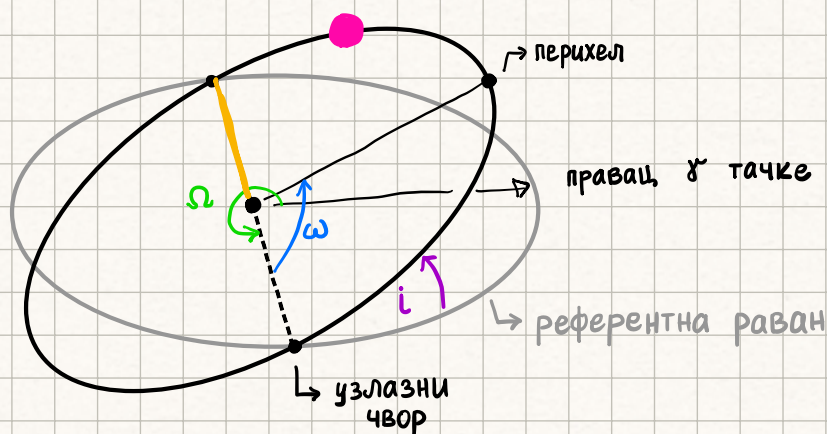 перихел
правац γ тачке
Ω
ω
i
референтна раван
узлазни
чвор